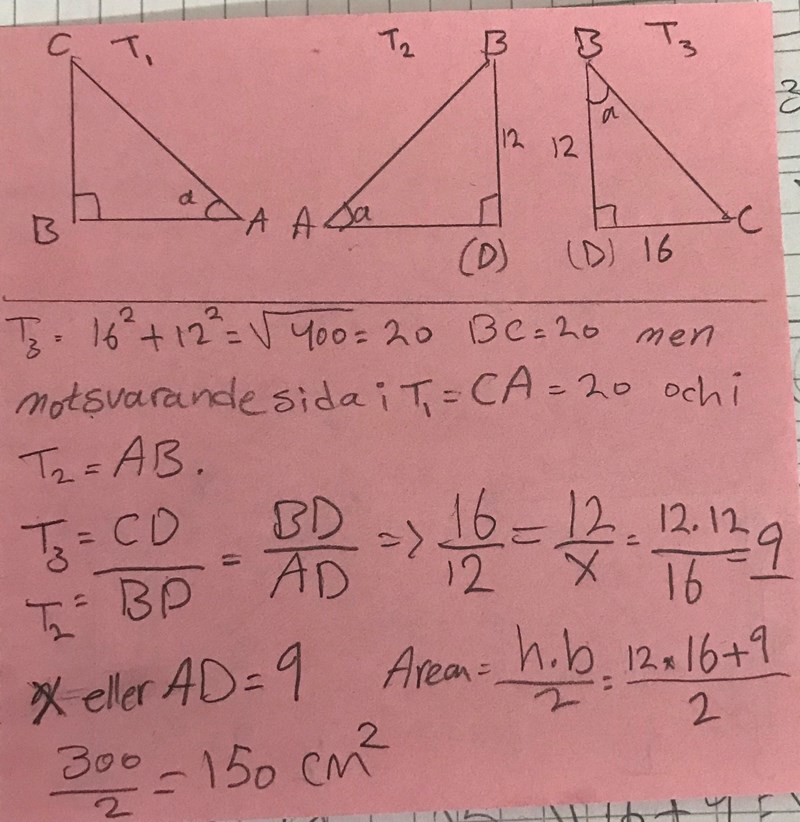 C T₁ T₂ B B T₃
12 12 a
B a A A a (D) (D) 16 C
T₃ = 16² + 12² = √400 = 20 BC = 20 men
motsvarande sida i T₁ = CA = 20 och i
T₂ = AB.
T₃ = CD/BD = BD/AD => 16/12 = 12/x = 12.12/16 = 9
T₂ =
x eller AD = 9 Arean = h.b/2 = 12×16+9/2
300/2 = 150 cm²